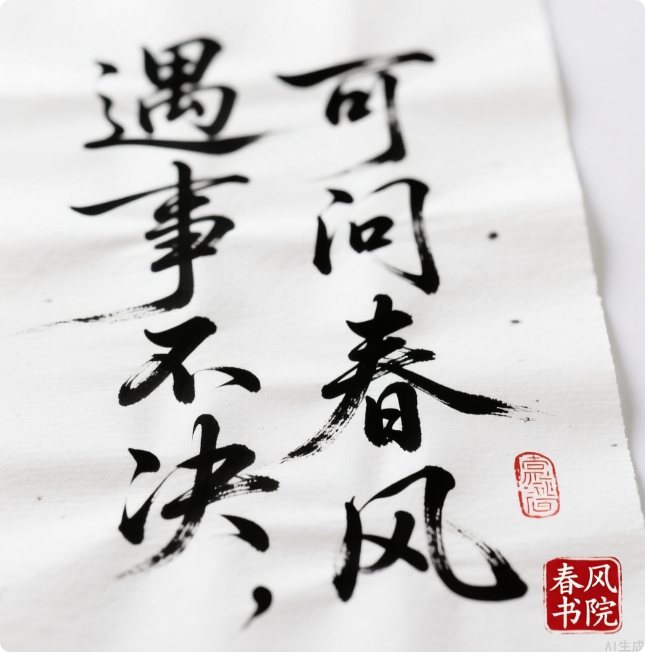 遇事不决，
可问春风
春风
书院
AI生成